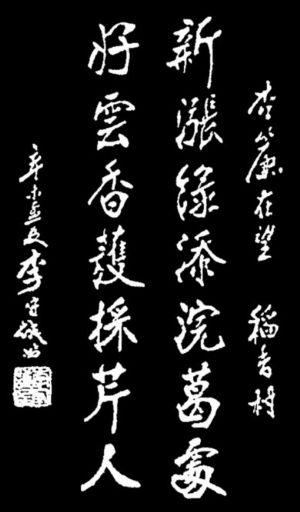 杏簾在望 稻香村
新漲綠添浣葛處
好雲香護採芹人
辛未孟夏李守誠书